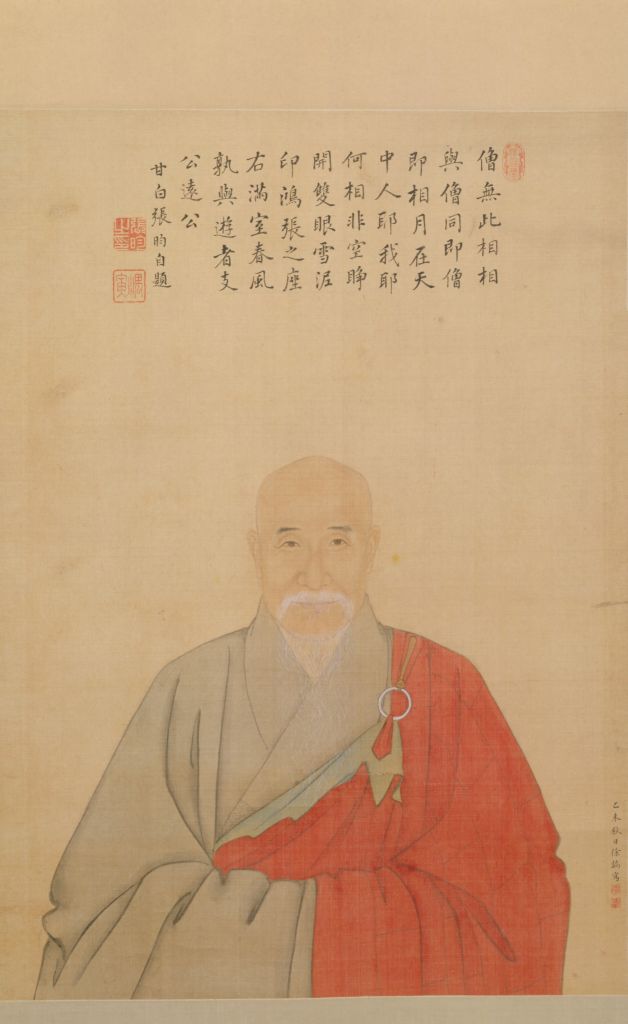 僧無此相相
與僧同即僧
即相月在天
中人耶我耶
何相非空睜
開雙眼雪泥
印鴻張之座
右滿室春風
孰與遊者支
公遠公
甘白張昀自題
張昀之印
乙未秋日徐璋寫